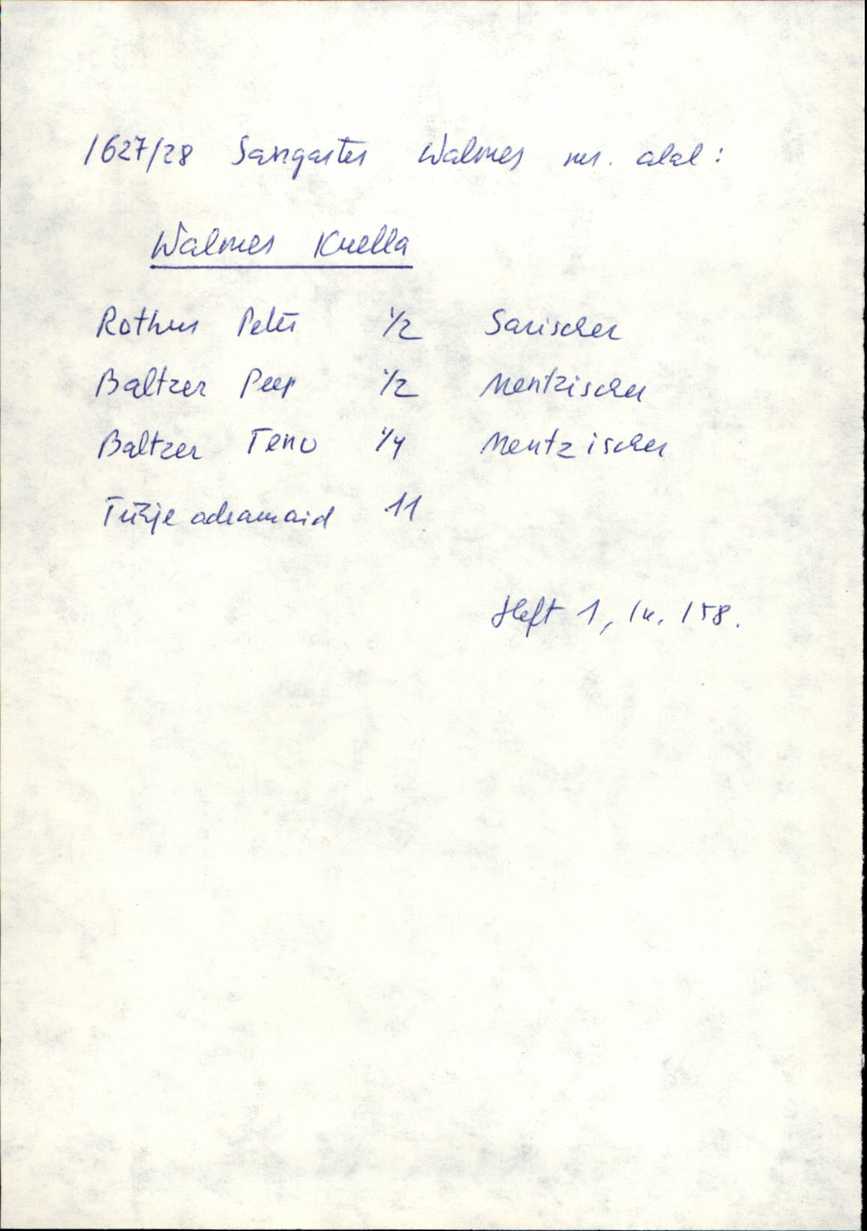 1627/28 Sangastes Walmes ms. alal:
Walmes Kuella
Rothus Peter 1/2 Sarischer
Baltzer Peep 1/2 Mentzischer
Baltzer Teno 1/4 Mentzischer
Tühje adramaid 11
Heft 1, lk. 158.